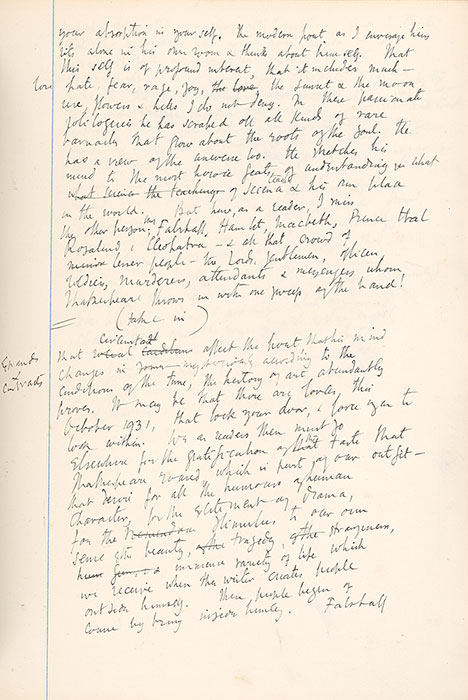 your absorption in yourself. The modern poet as I envisage him
sits alone in his own room & thinks about himself. That
this self is of profound interest, that it includes much —
love
hate, fear, rage, joy, the love, the sunset & the moon
rise, flowers & hills I do not deny. In these passionate
soliloquies he has scraped off all kinds of rare
barnacles that grow about the roots of the soul. He
has a view of the universe too. He stretches his
mind to the most heroic feats of understanding what
science teaches of science & his own place
in the world. But here, as a reader, I miss
the other person; Falstaff, Hamlet, Macbeth, Prince Hal
Rosalind, Cleopatra — & all that crowd of
minor lesser people — the Lords, gentlemen, officers
soldiers, murderers, attendants & messengers whom
Shakespeare throws in with one sweep of the hand!
(take in)
Expands
& contracts
That affect the poet that his mind
changes in according to the
conditions of the time, the history of art abundantly
proves. It may be that there are forces, this
October 1931, that lock your door, & force you to
look within. We as readers then must go
elsewhere for the gratification of that taste that
Shakespeare roused which is part of our outfit —
that desire for all the humours of human
character, for the excitement of drama,
for the glimpses to our own
sense of the beauty, of the tragedy, of the strangeness,
& immense variety of life which
we receive when the writer creates people
outside himself. Then, people began of
course by being inside himself. Falstaff